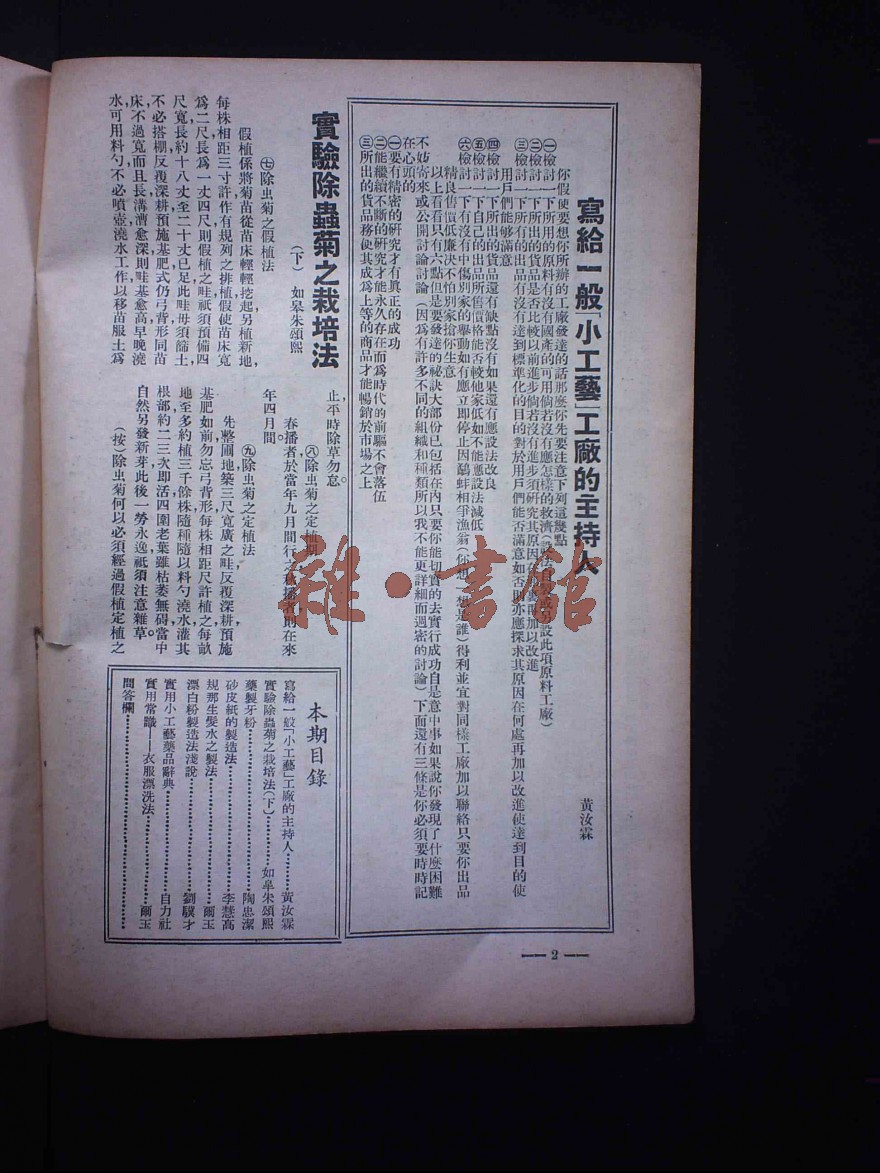 寫給一般「小工藝」工廠的主持人
黃汝霖
你假使要想你所辦的工廠發達的話那麼你先要注意下列這幾點
㊀檢討一下所用的原料有沒有國產的可用倘若沒有應怎樣的救濟
設此項原料工廠)
㊁檢討一下所出的貨品是否比較以前進步倘若沒有進步須研究其原因在
加以改進
㊂檢討一下所有的出品有沒有達到標準化的目的對於用戶們能否滿意如否則亦應探求其原因在何處再加以改進使達到目的使
用戶們能够滿意
㊃檢討一下所出的貨品還有缺點沒有如果還有應設法改良
㊄檢討一下自己的出品所售價格能否較他家低如不能應設法減低
㊅檢討一下有沒有中傷別家的舉動如有應立即停止因鷸蚌相爭漁翁
得利並宜對同樣工廠加以聯絡只要你出品
精良售價低廉决不怕別家搶你生意
以上看看只有六點但是要發達的祕訣大部份已包括在內只要你能切實的去實行成功自是意中事如果說你發現了什麼困難
不妨寄來或公開討論討論(因爲有許多不同的組織和種類所以我不能更詳細而週密的討論)下面還有三條是你必須要時時記
在心頭的
㊀要有精密的研究才有眞正的成功
㊁能繼續不斷的研究才能永久存在而爲時代的前驅不會落伍
㊂所出的貨品務使其成爲上等的商品才能暢銷於市場之上
實驗除蟲菊之栽培法
(下)
如皋朱頌熙
㊆除虫菊之假植法
假植係將菊苗從苗床輕輕挖起另植新地,
每株相距三寸許作有規列之排植假使苗床寬
爲二尺長爲一丈四尺則假植之畦祇須預備四
尺寬長約十八丈至二十丈已足此畦毋須篩土,
不必搭棚反覆深耕預施基肥式仍弓背形同苗
床,不過寬而且長溝漕愈深則畦基愈高早晚澆
水可用料勺不必噴壺澆水工作以移苗服土爲
止,平時除草勿忘。
㊇除虫菊之定植期
春播者於當年九月間行之秋播者則在來
年四月間。
㊈除虫菊之定植法
先整圃地築三尺寬廣之畦反覆深耕預施
基肥如前勿忘弓背形每株相距尺許植之每畝
地至多約植三千餘株隨種隨以料勺澆水灌其
根部約二三次即活四圍老葉雖枯萎無碍當中
自然另發新芽此後一勞永逸祇須注意雜草。
(按)除虫菊何以必須經過假植定植之
本期目錄
寫給一般「小工藝」工廠的主持人……黃汝霖
實驗除蟲菊之栽培法(下)……如皋朱頌熙
藥製牙粉……陶忠潔
砂皮紙的製造法……李慧高
規那生髮水之製法……爾玉
漂白粉製造法淺說……劉驥才
實用小工藝藥品辭典……自力社
實用常識——衣服漂洗法……爾玉
問答欄……
— 2 —
雜·書館